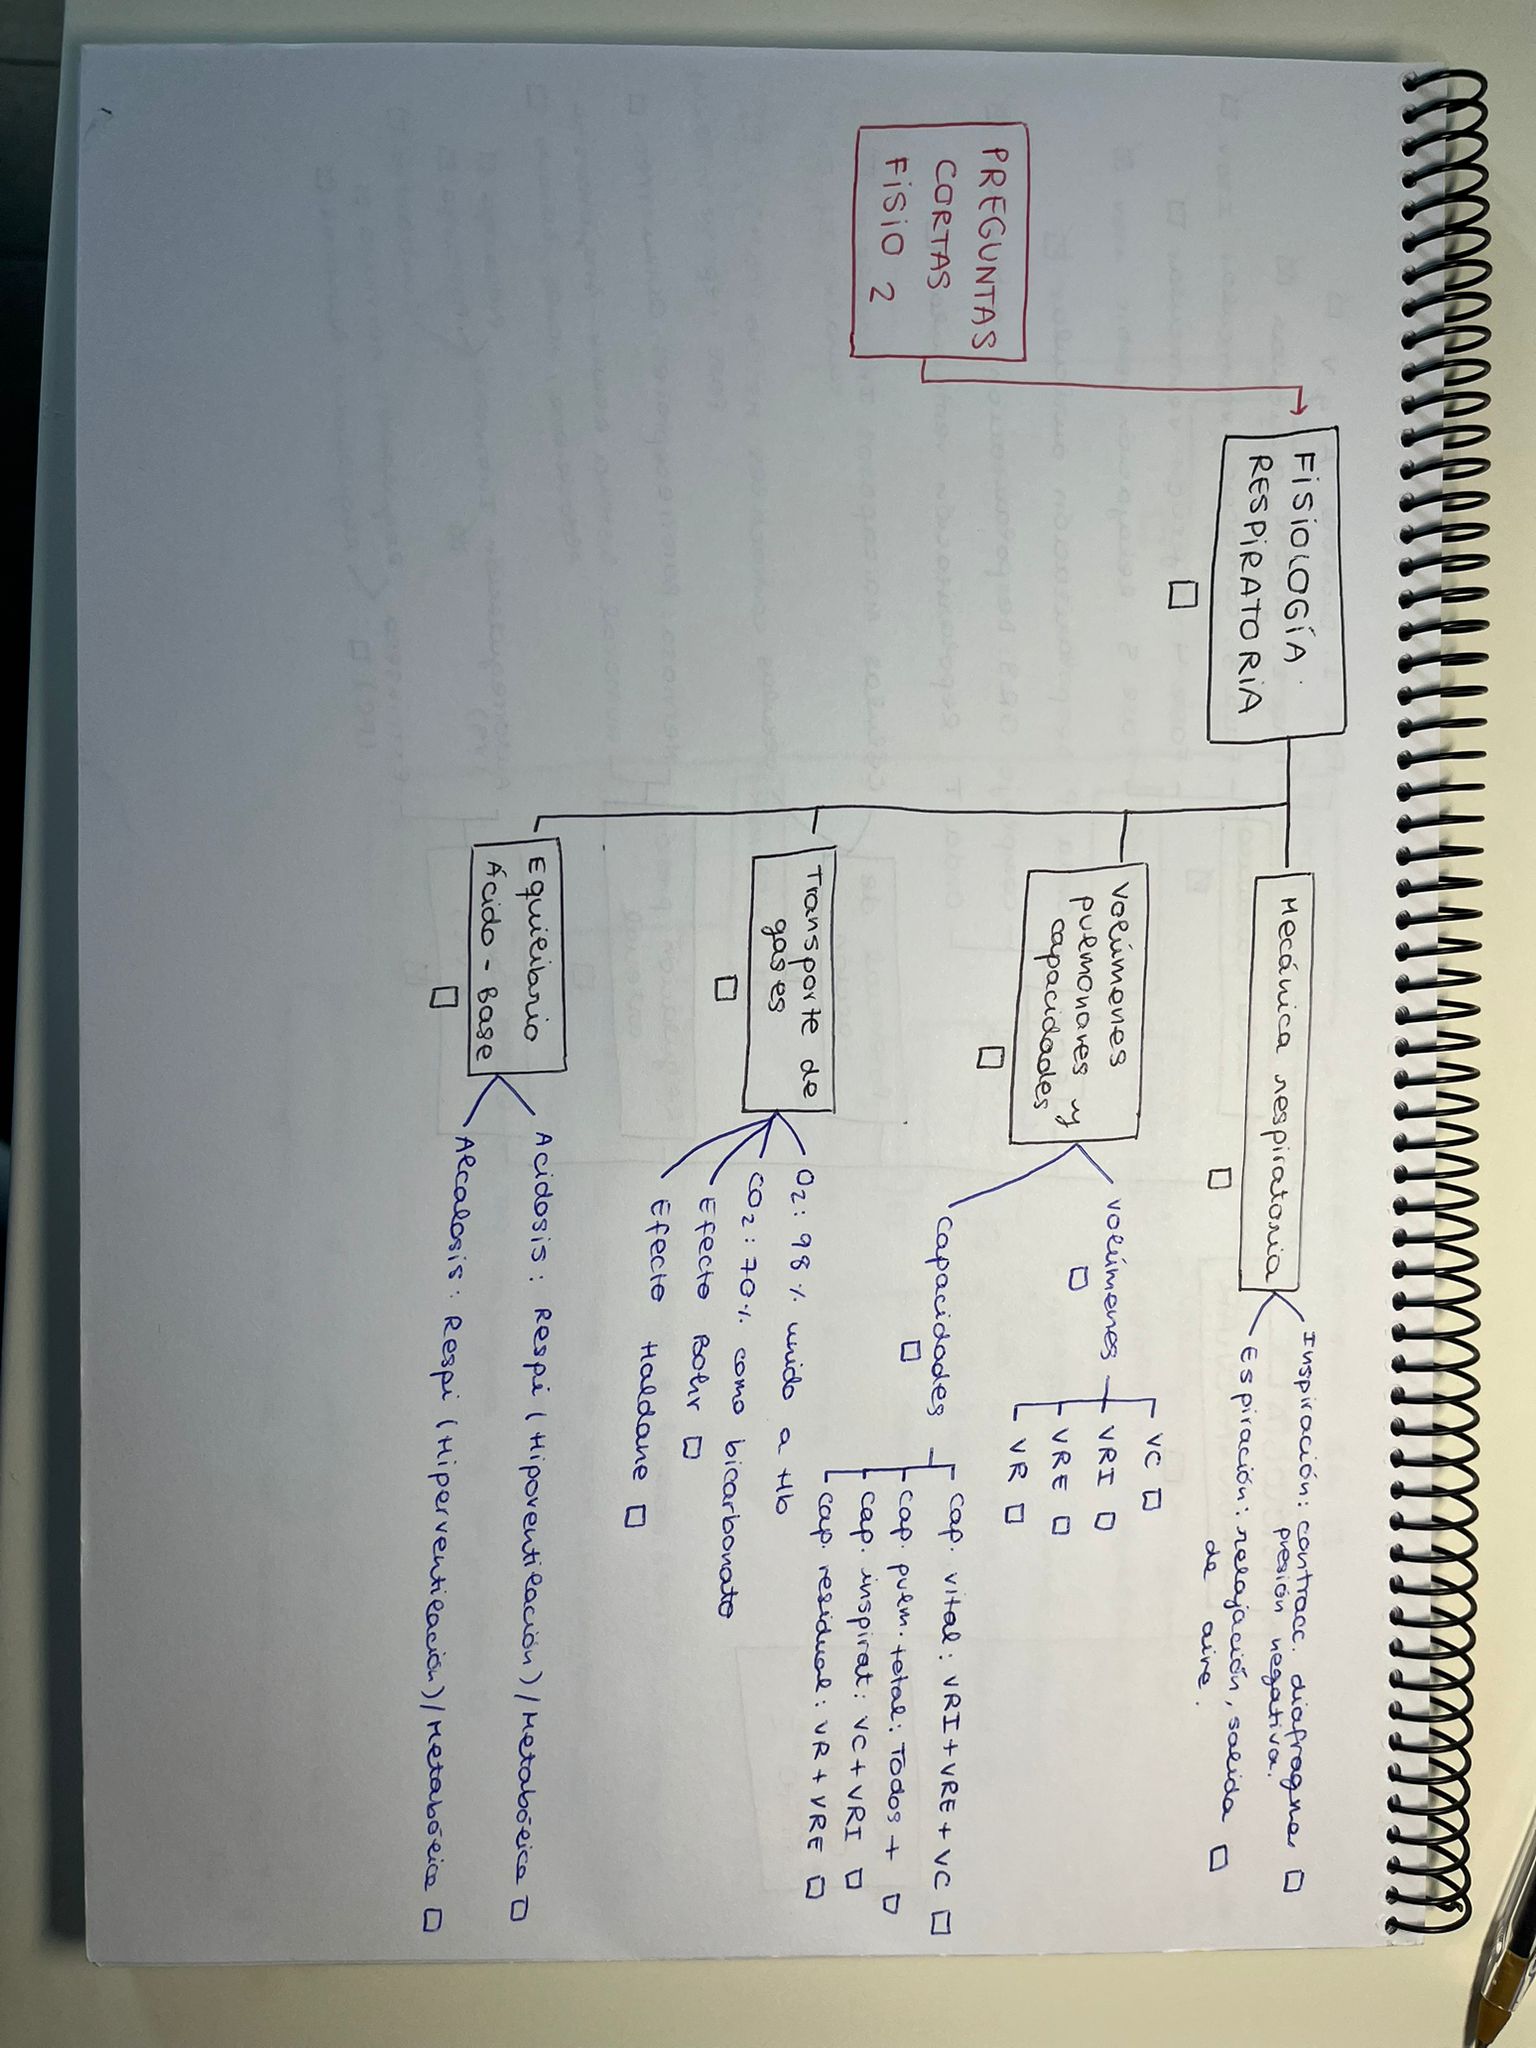 PREGUNTAS
CORTAS
FISIO 2
FISIOLOGÍA
RESPIRATORIA
Mecánica respiratoria
Inspiración: contracc. diafragma
presión negativa.
Espiración: relajación, salida
de aire.
Volúmenes
pulmonares y
capacidades
Volúmenes
VC
VRI
VRE
VR
Capacidades
Cap. vital: VRI + VRE + VC
Cap. pulm. total: Todos +
Cap. inspirat: VC + VRI
Cap. residual: VR + VRE
Transporte de
gases
O2: 98% unido a Hb
CO2: 70% como bicarbonato
Efecto Bohr
Efecto Haldane
Equilibrio
Ácido - Base
Acidosis: Respi (Hipoventilación) / Metabólica
Alcalosis: Respi (Hiperventilación) / Metabólica